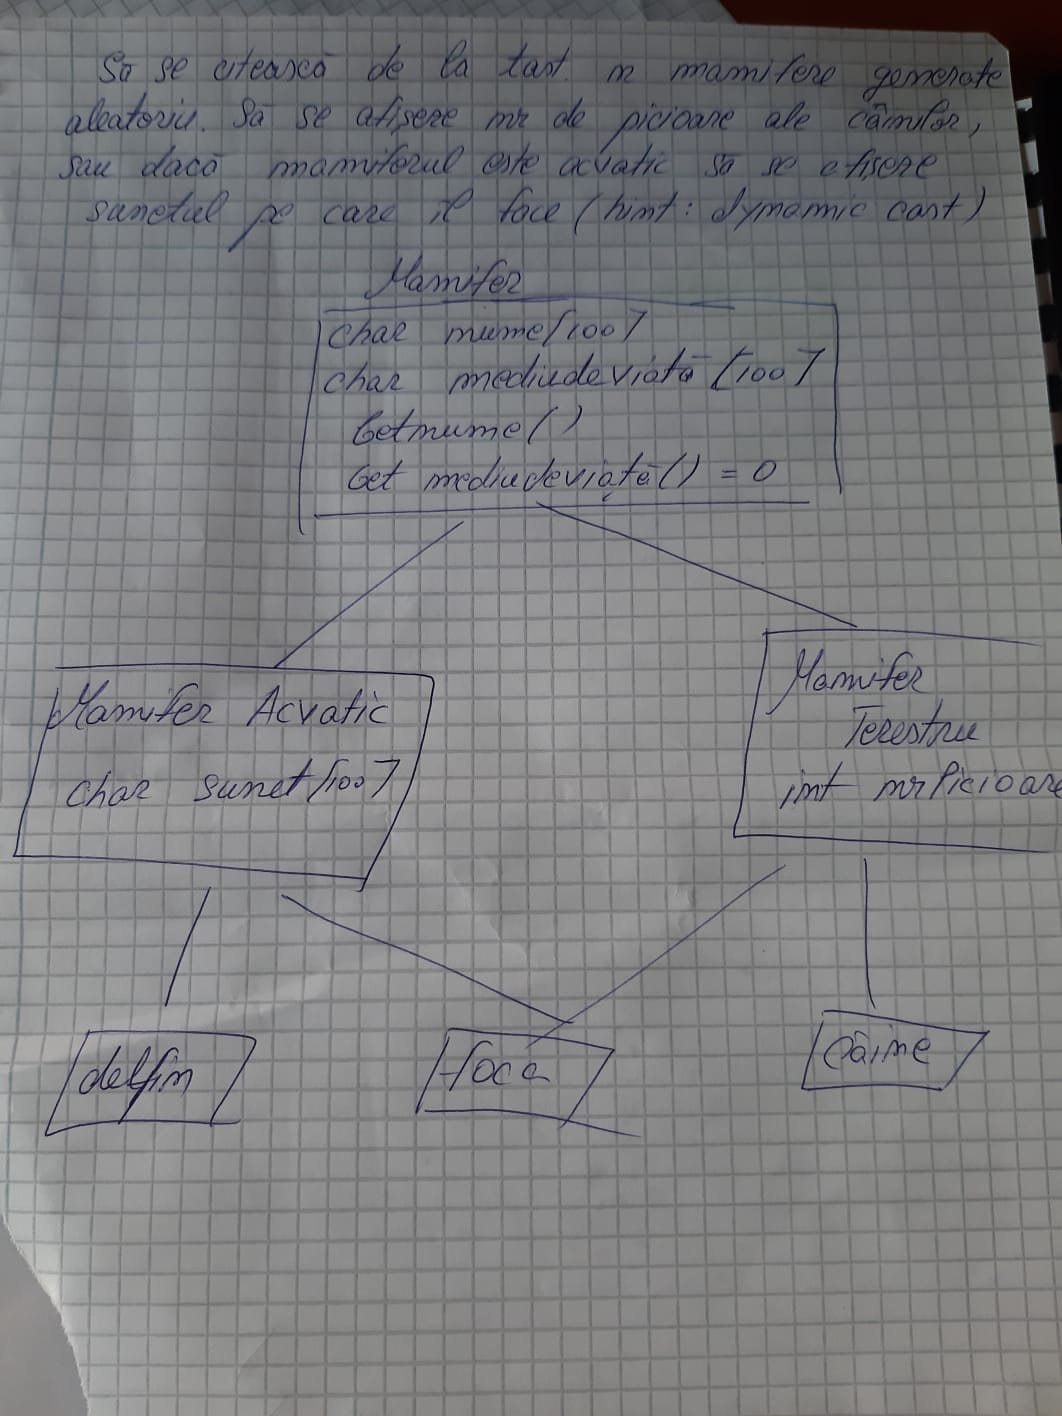 Să se citească de la tast. n mamifere generate
aleatoriu. Să se afișeze nr de picioare ale câinilor,
sau dacă mamiferul este acvatic să se afișeze
sunetul pe care îl face (hint: dynamic cast)
Mamifer
char nume[100]
char mediudeviată[100]
Getnume()
Get mediudeviață() = 0
Mamifer Acvatic
char sunet[100]
Mamifer
Terestru
int nrPicioare
delfin
foca
Câine